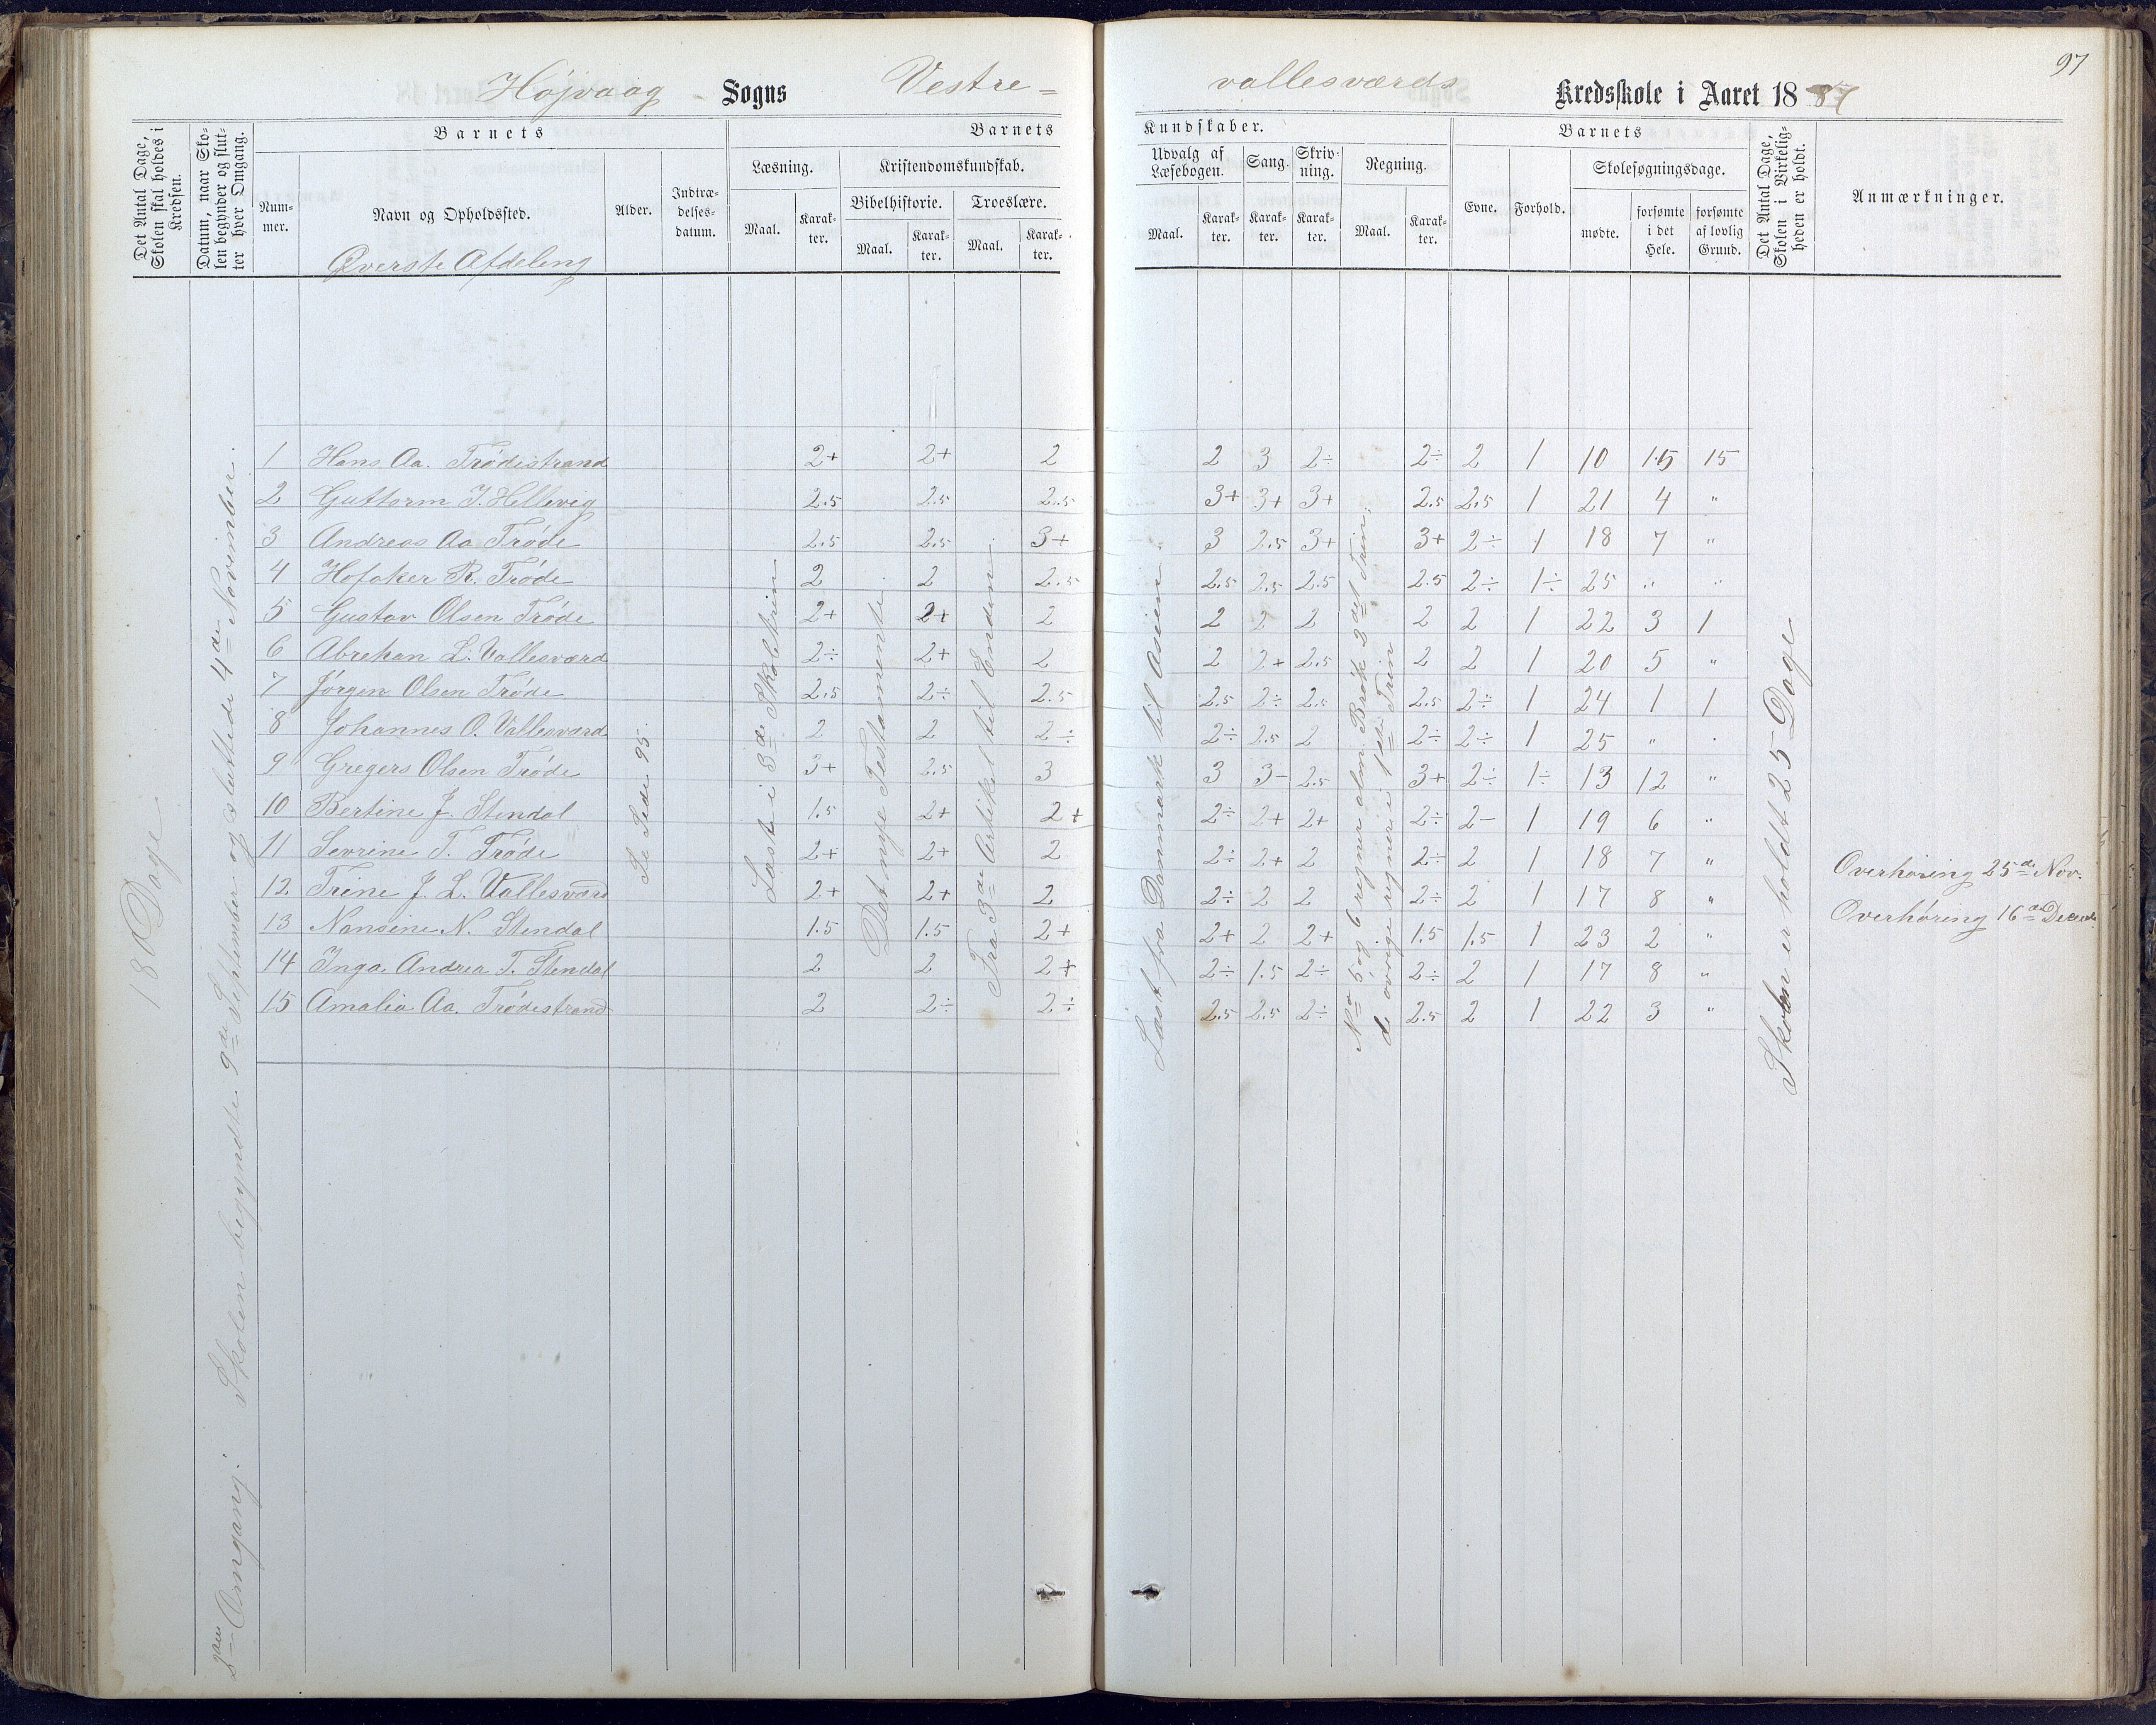 97
Højvaag Sogns Vestre=
vallesværds Kredsskole i Aaret 1887
Det Antal Dage, Skolen skal holdes i Kredsen.
Datum, naar Skolen begynder og slutter hver Omgang.
Barnets
Nummer.
Navn og Opholdssted.
Øverste Afdeling
Alder.
Indtrædelsesdatum.
Barnets Kundskaber.
Læsning.
Maal. Karakter.
Kristendomskundskab.
Bibelhistorie. Troeslære.
Maal. Karakter. Maal. Karakter.
Udvalg af Læsebogen. Sang. Skrivning. Regning.
Maal. Karakter. Karakter. Karakter. Maal. Karakter.
Barnets
Evne. Forhold. Skolesøgningsdage.
mødte. forsømte i det Hele. forsømte af lovlig Grund.
Det Antal Dage, Skolen i Virkeligheden er holdt.
Anmærkninger.
18 Dage
2den Omgang: Skolen begyndte 9de September og sluttede 4de November.
Se Side 95.
Læst i 3de Skoletrin
Det nye Testamente
Fra 3de Artikel til Enden
Læst fra Danmark til Asien.
No 5 og 6 regner alm. Brøk 2det Trin.
de øvrige regner i 1ste Trin
Skolen er holdt 25 Dage
1 Hans Aa. Trødestrand 2+ 2+ 2 2 3 2÷ 2÷ 2 1 10 15 15
2 Guttorm J. Hellevig 2.5 2.5 2.5 3+ 3+ 3+ 2.5 2.5 1 21 4 "
3 Andreas Aa Trøde 2.5 2.5 3+ 3 2.5 3+ 3+ 2÷ 1 18 7 "
4 Hofaker R. Trøde 2 2 2.5 2.5 2.5 2.5 2.5 2÷ 1÷ 25 " "
5 Gustav Olsen Trøde 2+ 2+ 2 2 2 2 2 2 1 22 3 1
6 Abrehan L. Vallesværd 2÷ 2+ 2 2 2+ 2.5 2 2 1 20 5 "
7 Jørgen Olsen Trøde 2.5 2÷ 2.5 2.5 2÷ 2.5 2.5 2÷ 1 24 1 1
8 Johannes O. Vallesværd 2 2 2÷ 2÷ 2.5 2 2÷ 2÷ 1 25 " "
9 Gregers Olsen Trøde 3+ 2.5 3 3 3- 2.5 3+ 2÷ 1÷ 13 12 "
10 Bertine J. Stendal 1.5 2+ 2+ 2÷ 2+ 2+ 2÷ 2- 1 19 6 "
11 Sevrine T. Trøde 2+ 2+ 2 2÷ 2+ 2 2÷ 2 1 18 7 "
12 Trine J. L. Vallesværd 2+ 2+ 2 2÷ 2 2 2÷ 2 1 17 8 "
13 Nansine N. Stendal 1.5 1.5 2+ 2+ 2 2+ 1.5 1.5 1 23 2 "
14 Inga Andrea T. Stendal 2 2 2+ 2÷ 1.5 2÷ 2÷ 2 1 17 8 "
15 Amalia Aa. Trødestrand 2 2÷ 2÷ 2.5 2.5 2÷ 2.5 2 1 22 3 "
Overhøring 25de Nov.
Overhøring 16de Decemb.